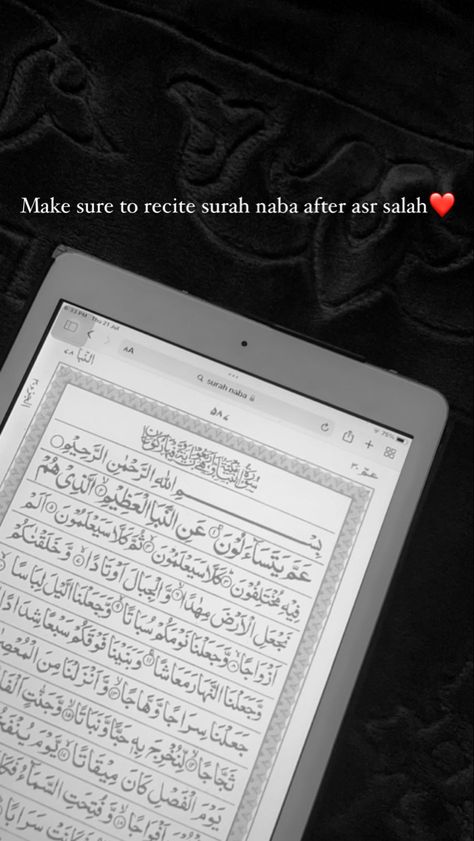 Make sure to recite surah naba after asr salah❤️
Thu 21 Jul
76%
AA
surah naba
النبا ٧٨
٥٨٤
عم ٣٠
بِسْمِ اللهِ الرَّحْمٰنِ الرَّحِيْمِ
عَمَّ يَتَسَآءَلُوْنَ ۚ﴿١﴾ عَنِ النَّبَاِ الْعَظِيْمِ ۙ﴿٢﴾ الَّذِیْ هُمْ
فِيْهِ مُخْتَلِفُوْنَ ؕ﴿٣﴾ كَلَّا سَيَعْلَمُوْنَ ۙ﴿٤﴾ ثُمَّ كَلَّا سَيَعْلَمُوْنَ ﴿٥﴾ اَلَمْ
نَجْعَلِ الْاَرْضَ مِهٰدًا ۙ﴿٦﴾ وَّالْجِبَالَ اَوْتَادًا ۪ۙ﴿٧﴾ وَّخَلَقْنٰكُمْ
اَزْوَاجًا ۙ﴿٨﴾ وَّجَعَلْنَا نَوْمَكُمْ سُبَاتًا ۙ﴿٩﴾ وَّجَعَلْنَا الَّيْلَ لِبَاسًا ۙ﴿١٠﴾
وَّجَعَلْنَا النَّهَارَ مَعَاشًا ۪﴿١١﴾ وَّبَنَيْنَا فَوْقَكُمْ سَبْعًا شِدَادًا
جَعَلْنَا سِرَاجًا وَّهَّاجًا ۪ۙ﴿١٣﴾ وَّاَنْزَلْنَا مِنَ
ثَجَّاجًا ۙ﴿١٤﴾ لِّنُخْرِجَ بِهٖ حَبًّا وَّنَبَاتًا ۙ﴿١٥﴾ وَّجَنّٰتٍ
يَوْمَ الْفَصْلِ كَانَ مِيْقَاتًا ۙ﴿١٧﴾ يَّوْمَ
اَفْوَاجًا ۙ﴿١٨﴾ وَّفُتِحَتِ السَّمَآءُ
كَانَتْ سَرَابًا